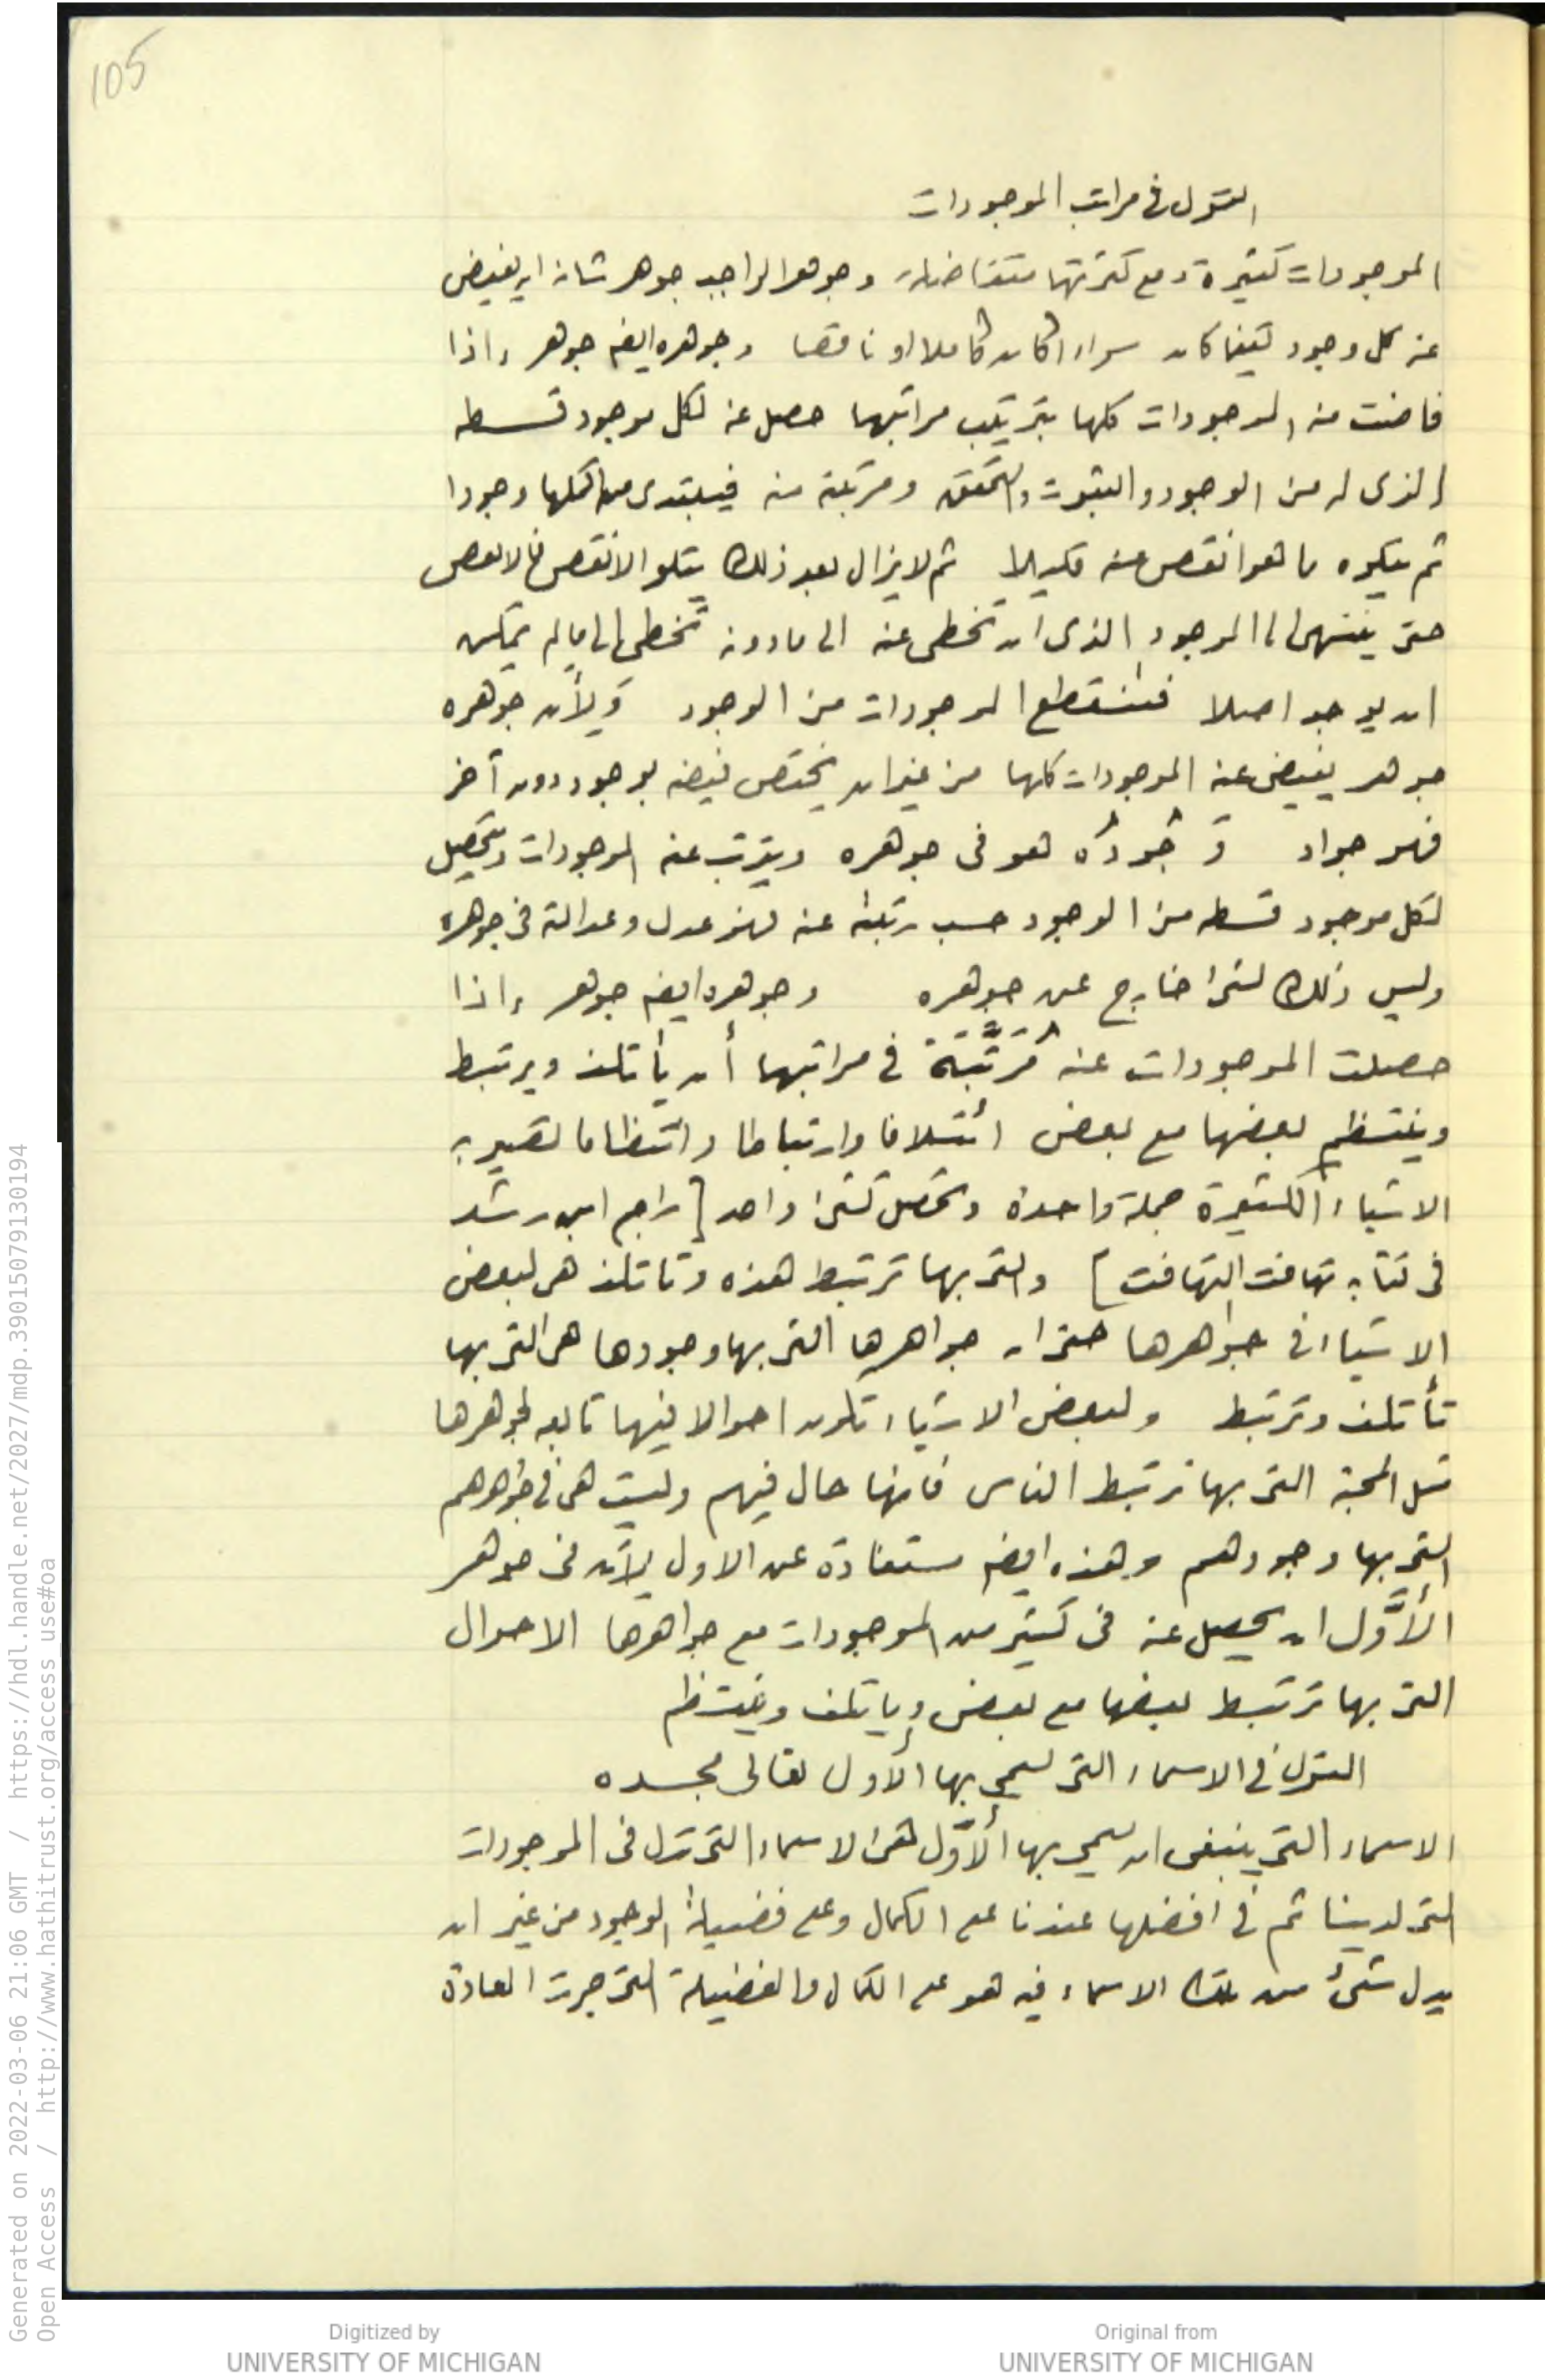 105
القول فى مراتب الموجودات
الموجودات كثيرة ومع كثرتها متفاضلة وجوهر الواجب جوهر شانه ان يفيض
عنه كل وجود كيفما كان سواء اكان كاملا او ناقصا وجوهره ايضه جوهر اذا
فاضت منه الموجودات كلها بترتيب مراتبها حصل عنه لكل موجود قسطه
الذى له من الوجود والثبوت والتحقق ومرتبته منه فيبتدى من اكملها وجودا
ثم يتلوه ما هو انقص منه قليلا ثم لا يزال بعد ذلك يتلو الانقص فالانقص
حتى ينتهى الى الموجود الذى ان تخطى عنه الى مادونه تخطى الى مالم يمكن
ان يوجد اصلا فتنقطع الموجودات من الوجود وَلأن جوهره
جوهر يفيض عنه الموجودات كلها من غير ان يختص فيضه بوجود دون آخر
فهو جواد وَ جُودُه هو فى جوهره ويترتب عنه الموجودات ويتحصل
لكل موجود قسطه من الوجود حسب رتبته عنه فهو عدل وعدالته فى جوهره
وليس ذلك لشئ خارج عن جوهره وجوهره ايضه جوهر اذا
حصلت الموجودات عنه مُرَتَّبَة فى مراتبها أن يأتلف ويرتبط
وينتظم بعضها مع بعض ائتلافا وارتباطا وانتظاما تصير به
الاشياء الكثيرة جملة واحدة وتحصل كشئ واحد [راجع ابن رشد
فى كتابه تهافت التهافت] والتى بها ترتبط هذه وتاتلف هى لبعض
الاشياء فى جواهرها حتى ان جواهرها التى بها وجودها هى التى بها
تأتلف وترتبط ولبعض الاشياء تكون احوالا فيها تابعه لجوهرها
مثل المحبة التى بها ترتبط الناس فانها حال فيهم وليست هى فى جواهرهم
التى بها وجودهم وهذه ايضه مستفادة عن الاول لِأن فى جوهر
الأوَّل ان يحصل عنه فى كثير من الموجودات مع جواهرها الاحوال
التى بها ترتبط بعضها مع بعض وياتلف وينتظم
القول فى الاسماء التى يسمى بها الأول تعالى مجده
الاسماء التى ينبغى ان يسمى بها الأوَّل هى الاسماء التى تدل فى الموجودات
التى لدينا ثم فى افضلها عندنا على الكمال وعلى فضيلة الوجود من غير ان
يدل شئ من تلك الاسماء فيه هو على الكمال والفضيلة التى جرت العادة
Generated on 2022-03-06 21:06 GMT / https://hdl.handle.net/2027/mdp.39015079130194
Open Access / http://www.hathitrust.org/access_use#oa
Digitized by
UNIVERSITY OF MICHIGAN
Original from
UNIVERSITY OF MICHIGAN